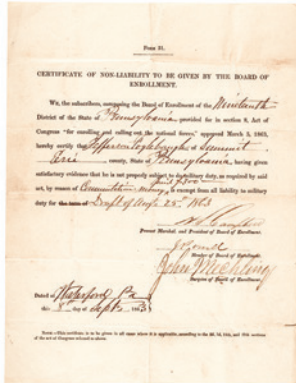 Form 31.
CERTIFICATE OF NON-LIABILITY TO BE GIVEN BY THE BOARD OF
ENROLLMENT.
We, the subscribers, composing the Board of Enrollment of the Nineteenth
District of the State of Pennsylvania provided for in section 8, Act of
Congress "for enrolling and calling out the national forces," approved March 3, 1863,
hereby certify that Jefferson of Summit
Erie county, State of Pennsylvania, having given
satisfactory evidence that he is not properly subject to do military duty, as required by said
paid $300
act, by reason of Commutation money is exempt from all liability to military
duty for the term of Draft of Aug. 25th 1863
Provost Marshal and President of Board of Enrollment.
Member of Board of Enrollment.
John
Surgeon of Board of Enrollment.
Dated at Waterford Pa
this 8th day of Sept 1863
NOTE.—This certificate is to be given in all cases where it is applicable, according to the 2d, 3d, 13th, and 17th sections
of the act of Congress referred to above.